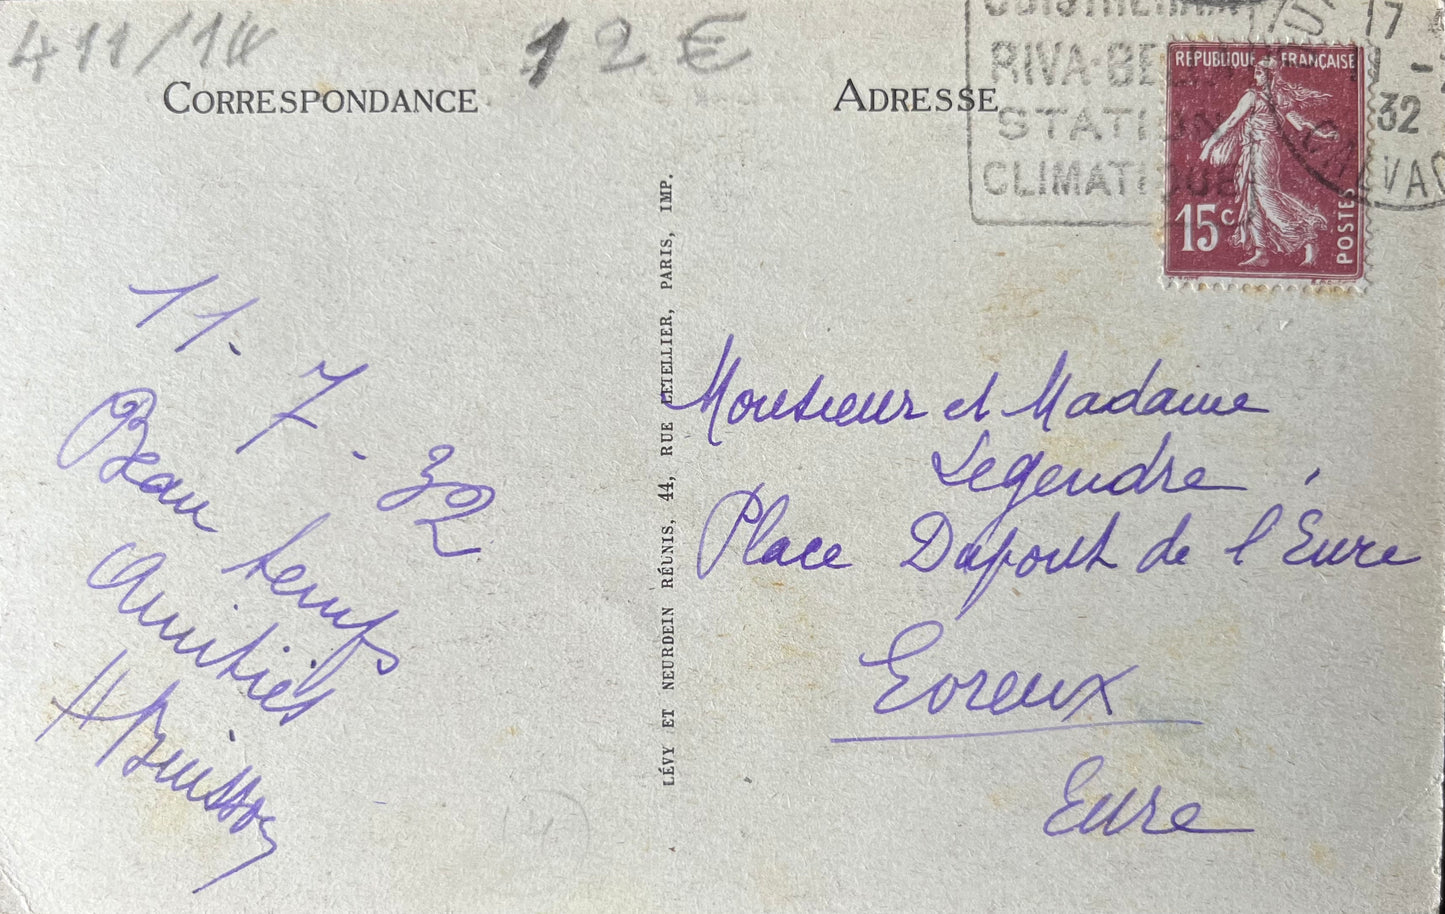 411/14
12€
CORRESPONDANCE
ADRESSE
RIVA-BELLA
STATION
CLIMATIQUE
17
32
CALVADOS
RÉPUBLIQUE FRANÇAISE
15c
POSTES
LÉVY ET NEURDEIN RÉUNIS, 44, RUE LETELLIER, PARIS, IMP.
11-7-32
Beau temps
Amitiés
H Buisson
Monsieur et Madame
Legendre,
Place Dupont de l'Eure
Evreux
Eure